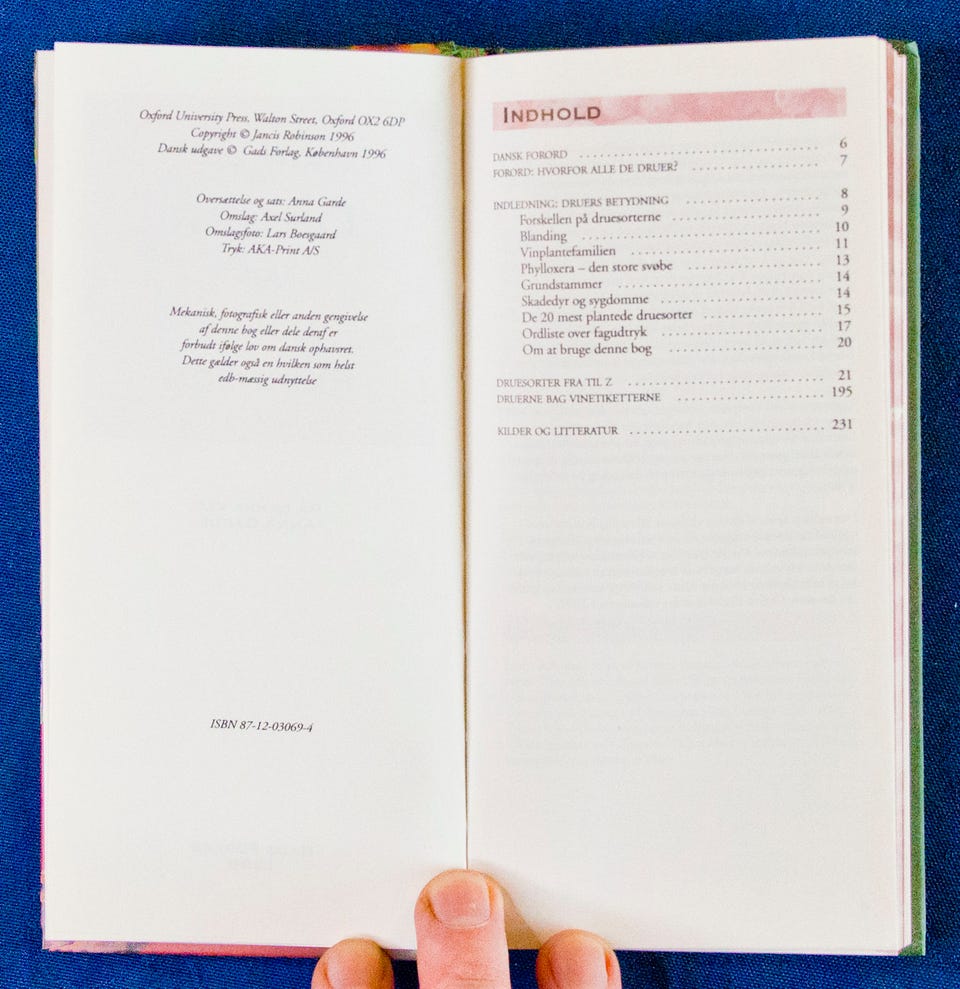 Oxford University Press, Walton Street, Oxford OX2 6DP
Copyright © Jancis Robinson 1996
Dansk udgave © Gads Forlag, København 1996
Oversættelse og sats: Anna Garde
Omslag: Axel Surland
Omslagsfoto: Lars Boesgaard
Tryk: AKA-Print A/S
Mekanisk, fotografisk eller anden gengivelse
af denne bog eller dele deraf er
forbudt ifølge lov om dansk ophavsret.
Dette gælder også en hvilken som helst
edb-mæssig udnyttelse
ISBN 87-12-03069-4
INDHOLD
DANSK FORORD .................... 6
FORORD: HVORFOR ALLE DE DRUER? .................... 7
INDLEDNING: DRUERS BETYDNING .................... 8
Forskellen på druesorterne .................... 9
Blanding .................... 10
Vinplantefamilien .................... 11
Phylloxera – den store svøbe .................... 13
Grundstammer .................... 14
Skadedyr og sygdomme .................... 14
De 20 mest plantede druesorter .................... 15
Ordliste over fagudtryk .................... 17
Om at bruge denne bog .................... 20
DRUESORTER FRA TIL Z .................... 21
DRUERNE BAG VINETIKETTERNE .................... 195
KILDER OG LITTERATUR .................... 231